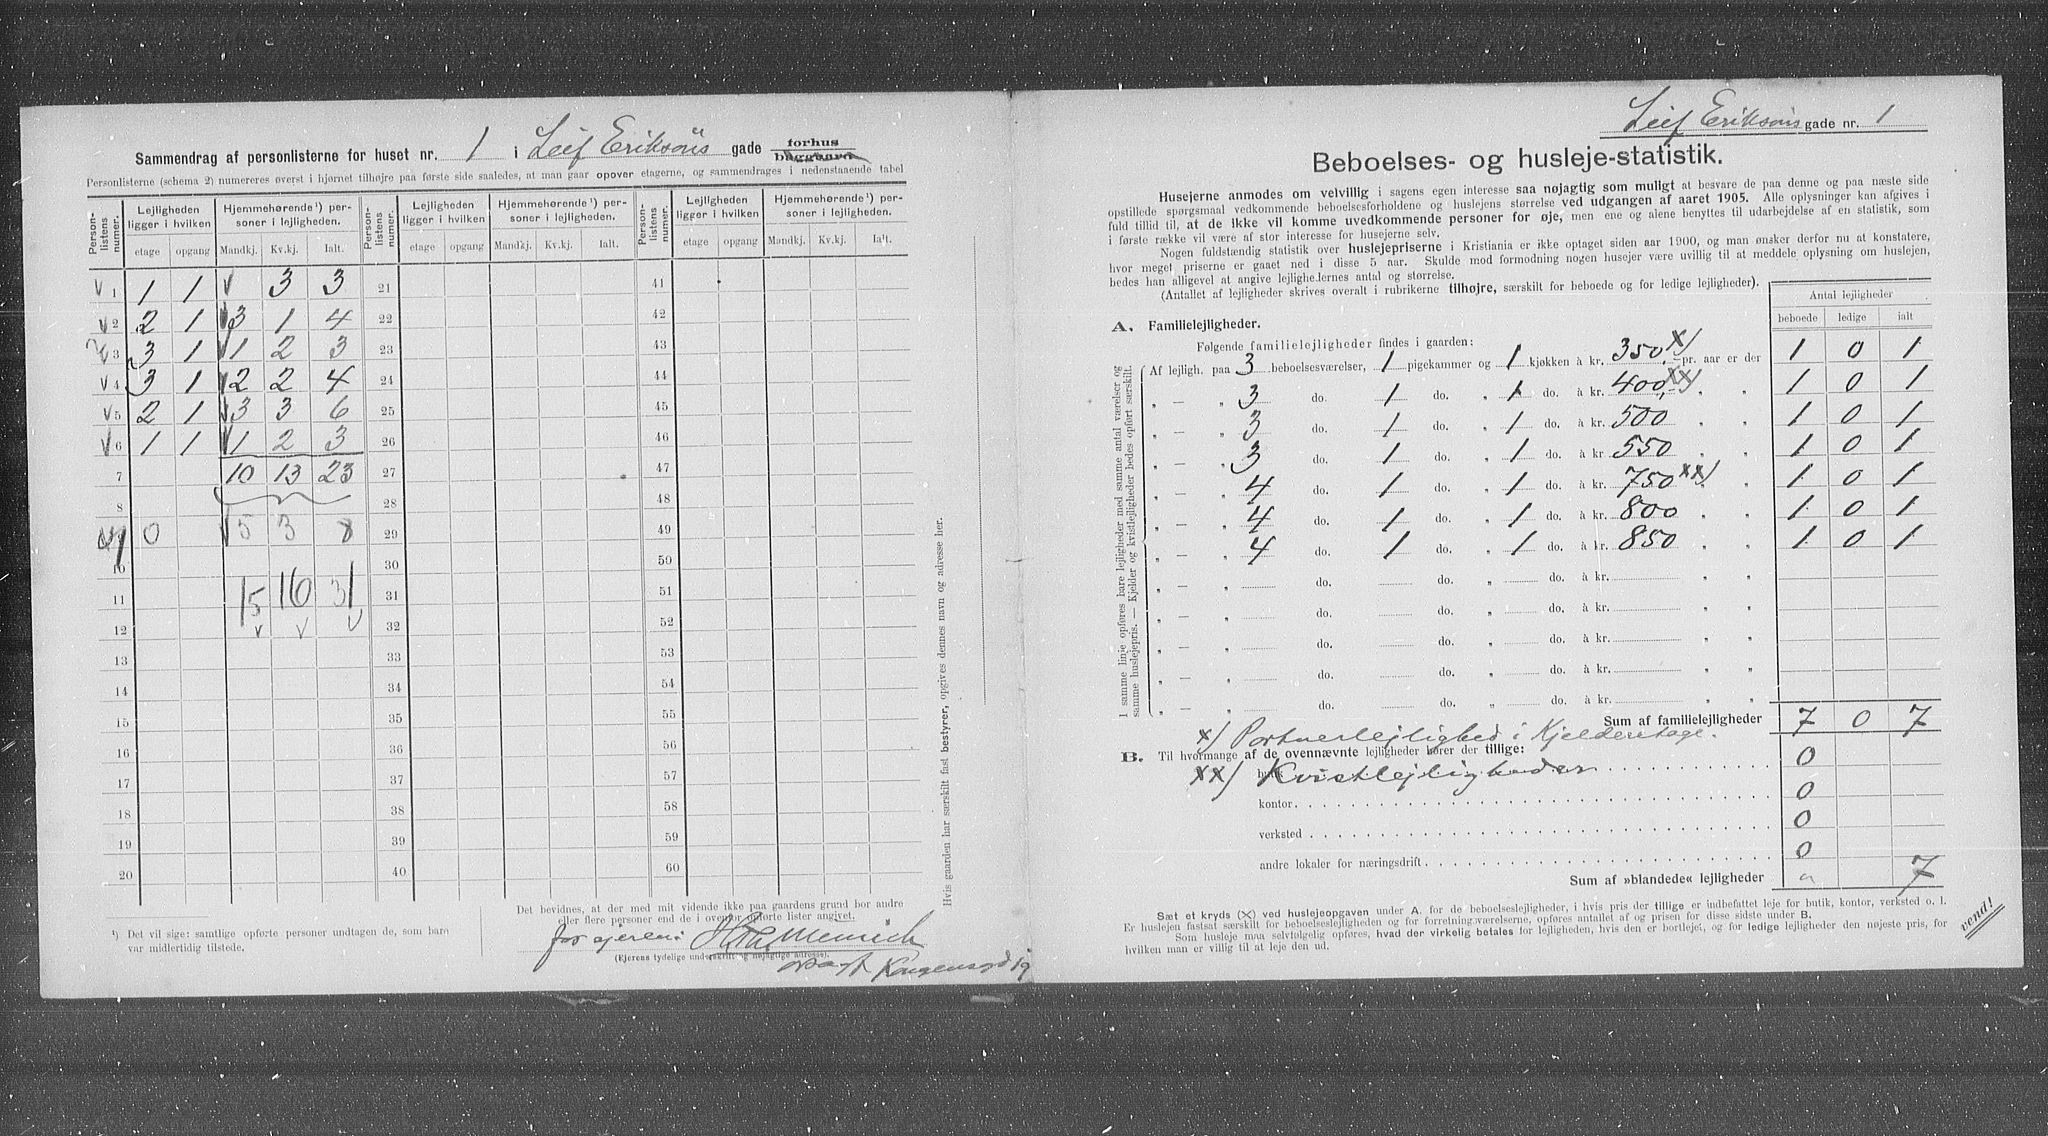 Sammendrag af personlisterne for huset nr. 1 i Leif Eriksöns gade forhus baggaard
Personlisterne (schema 2) numereres øverst i hjørnet tilhøjre paa første side saaledes, at man gaar opover etagerne, og sammendrages i nedenstaaende tabel
Person-listens numer. Lejligheden ligger i hvilken Hjemmehørende¹) personer i lejligheden. Person-listens numer. Lejligheden ligger i hvilken Hjemmehørende¹) personer i lejligheden. Person-listens numer. Lejligheden ligger i hvilken Hjemmehørende¹) personer i lejligheden.
etage opgang Mandkj. Kv.kj. Ialt. etage opgang Mandkj. Kv.kj. Ialt. etage opgang Mandkj. Kv.kj. Ialt.
V 1 1 1 V 3 3 21 41
V 2 2 1 V 3 1 4 22 42
V 3 3 1 V 1 2 3 23 43
V 4 3 1 V 2 2 4 24 44
V 5 2 1 V 3 3 6 25 45
V 6 1 1 V 1 2 3 26 46
7 10 13 23 27 47
8 28 48
0 V 5 3 8 29 49
10 30 50
11 15 16 31 31 51
12 V V V 32 52
13 33 53
14 34 54
15 35 55
16 36 56
17 37 57
18 38 58
19 39 59
20 40 60
¹) Det vil sige: samtlige opførte personer undtagen de, som bare var midlertidig tilstede.
Det bevidnes, at der med mit vidende ikke paa gaardens grund bor andre
eller flere personer end de i ovenfor anførte lister angivet.
for ejeren:
(Ejerens tydelige underskrift og nøjagtige adresse).
Kongensgd 19
Hvis gaarden har særskilt fast bestyrer, opgives dennes navn og adresse her.
Leif Eriksöns gade nr. 1
Beboelses- og husleje-statistik.
Husejerne anmodes om velvillig i sagens egen interesse saa nøjagtig som muligt at besvare de paa denne og paa næste side
opstillede spørgsmaal vedkommende beboelsesforholdene og huslejens størrelse ved udgangen af aaret 1905. Alle oplysninger kan afgives i
fuld tillid til, at de ikke vil komme uvedkommende personer for øje, men ene og alene benyttes til udarbejdelse af en statistik, som
i første række vil være af stor interesse for husejerne selv.
Nogen fuldstændig statistik over huslejepriserne i Kristiania er ikke optaget siden aar 1900, og man ønsker derfor nu at konstatere,
hvor meget priserne er gaaet ned i disse 5 aar. Skulde mod formodning nogen husejer være uvillig til at meddele oplysning om huslejen,
bedes han alligevel at angive lejlighedernes antal og størrelse.
(Antallet af lejligheder skrives overalt i rubrikerne tilhøjre, særskilt for beboede og for ledige lejligheder).
Antal lejligheder
beboede ledige ialt
A. Familielejligheder.
Følgende familielejligheder findes i gaarden:
Af lejligh. paa 3 beboelsesværelser, 1 pigekammer og 1 kjøkken à kr. 350 x) pr. aar er der 1 0 1
„ — „ 3 do. 1 do. „ 1 do. à kr. 400 xx) „ „ 1 0 1
„ — „ 3 do. 1 do. „ 1 do. à kr. 500 „ „ 1 0 1
„ — „ 3 do. 1 do. „ 1 do. à kr. 550 „ „ 1 0 1
„ — „ 4 do. 1 do. „ 1 do. à kr. 750 xx) „ „ 1 0 1
„ — „ 4 do. 1 do. „ 1 do. à kr. 800 „ „ 1 0 1
„ — „ 4 do. 1 do. „ 1 do. à kr. 850 „ „ 1 0 1
„ — „ do. do. „ do. à kr. „ „
„ — „ do. do. „ do. à kr. „ „
„ — „ do. do. „ do. à kr. „ „
„ — „ do. do. „ do. à kr. „ „
„ — „ do. do. „ do. à kr. „ „
I samme linje opføres bare lejligheder med samme antal værelser og
samme huslejepris. — Kjelder og kvistlejligheder bedes opført særskilt.
Sum af familielejligheder 7 0 7
x) Portnerlejlighed i Kjelderetage.
B. Til hvormange af de ovennævnte lejligheder hører der tillige:
butik 0
xx) Kvistlejligheder
kontor 0
verksted 0
andre lokaler for næringsdrift 0
Sum af »blandede« lejligheder 7
Sæt et kryds (X) ved huslejeopgaven under A. for de beboelseslejligheder, i hvis pris der tillige er indbefattet leje for butik, kontor, verksted o. l.
Er huslejen fastsat særskilt for beboelseslejligheden og for forretningsværelserne, opføres antallet af og prisen for disse sidste under B.
Som husleje maa selvfølgelig opføres, hvad der virkelig betales for lejligheden, hvis den er bortlejet, og for ledige lejligheder den nøjeste pris, for
hvilken man er villig til at leje den ud.
vend!